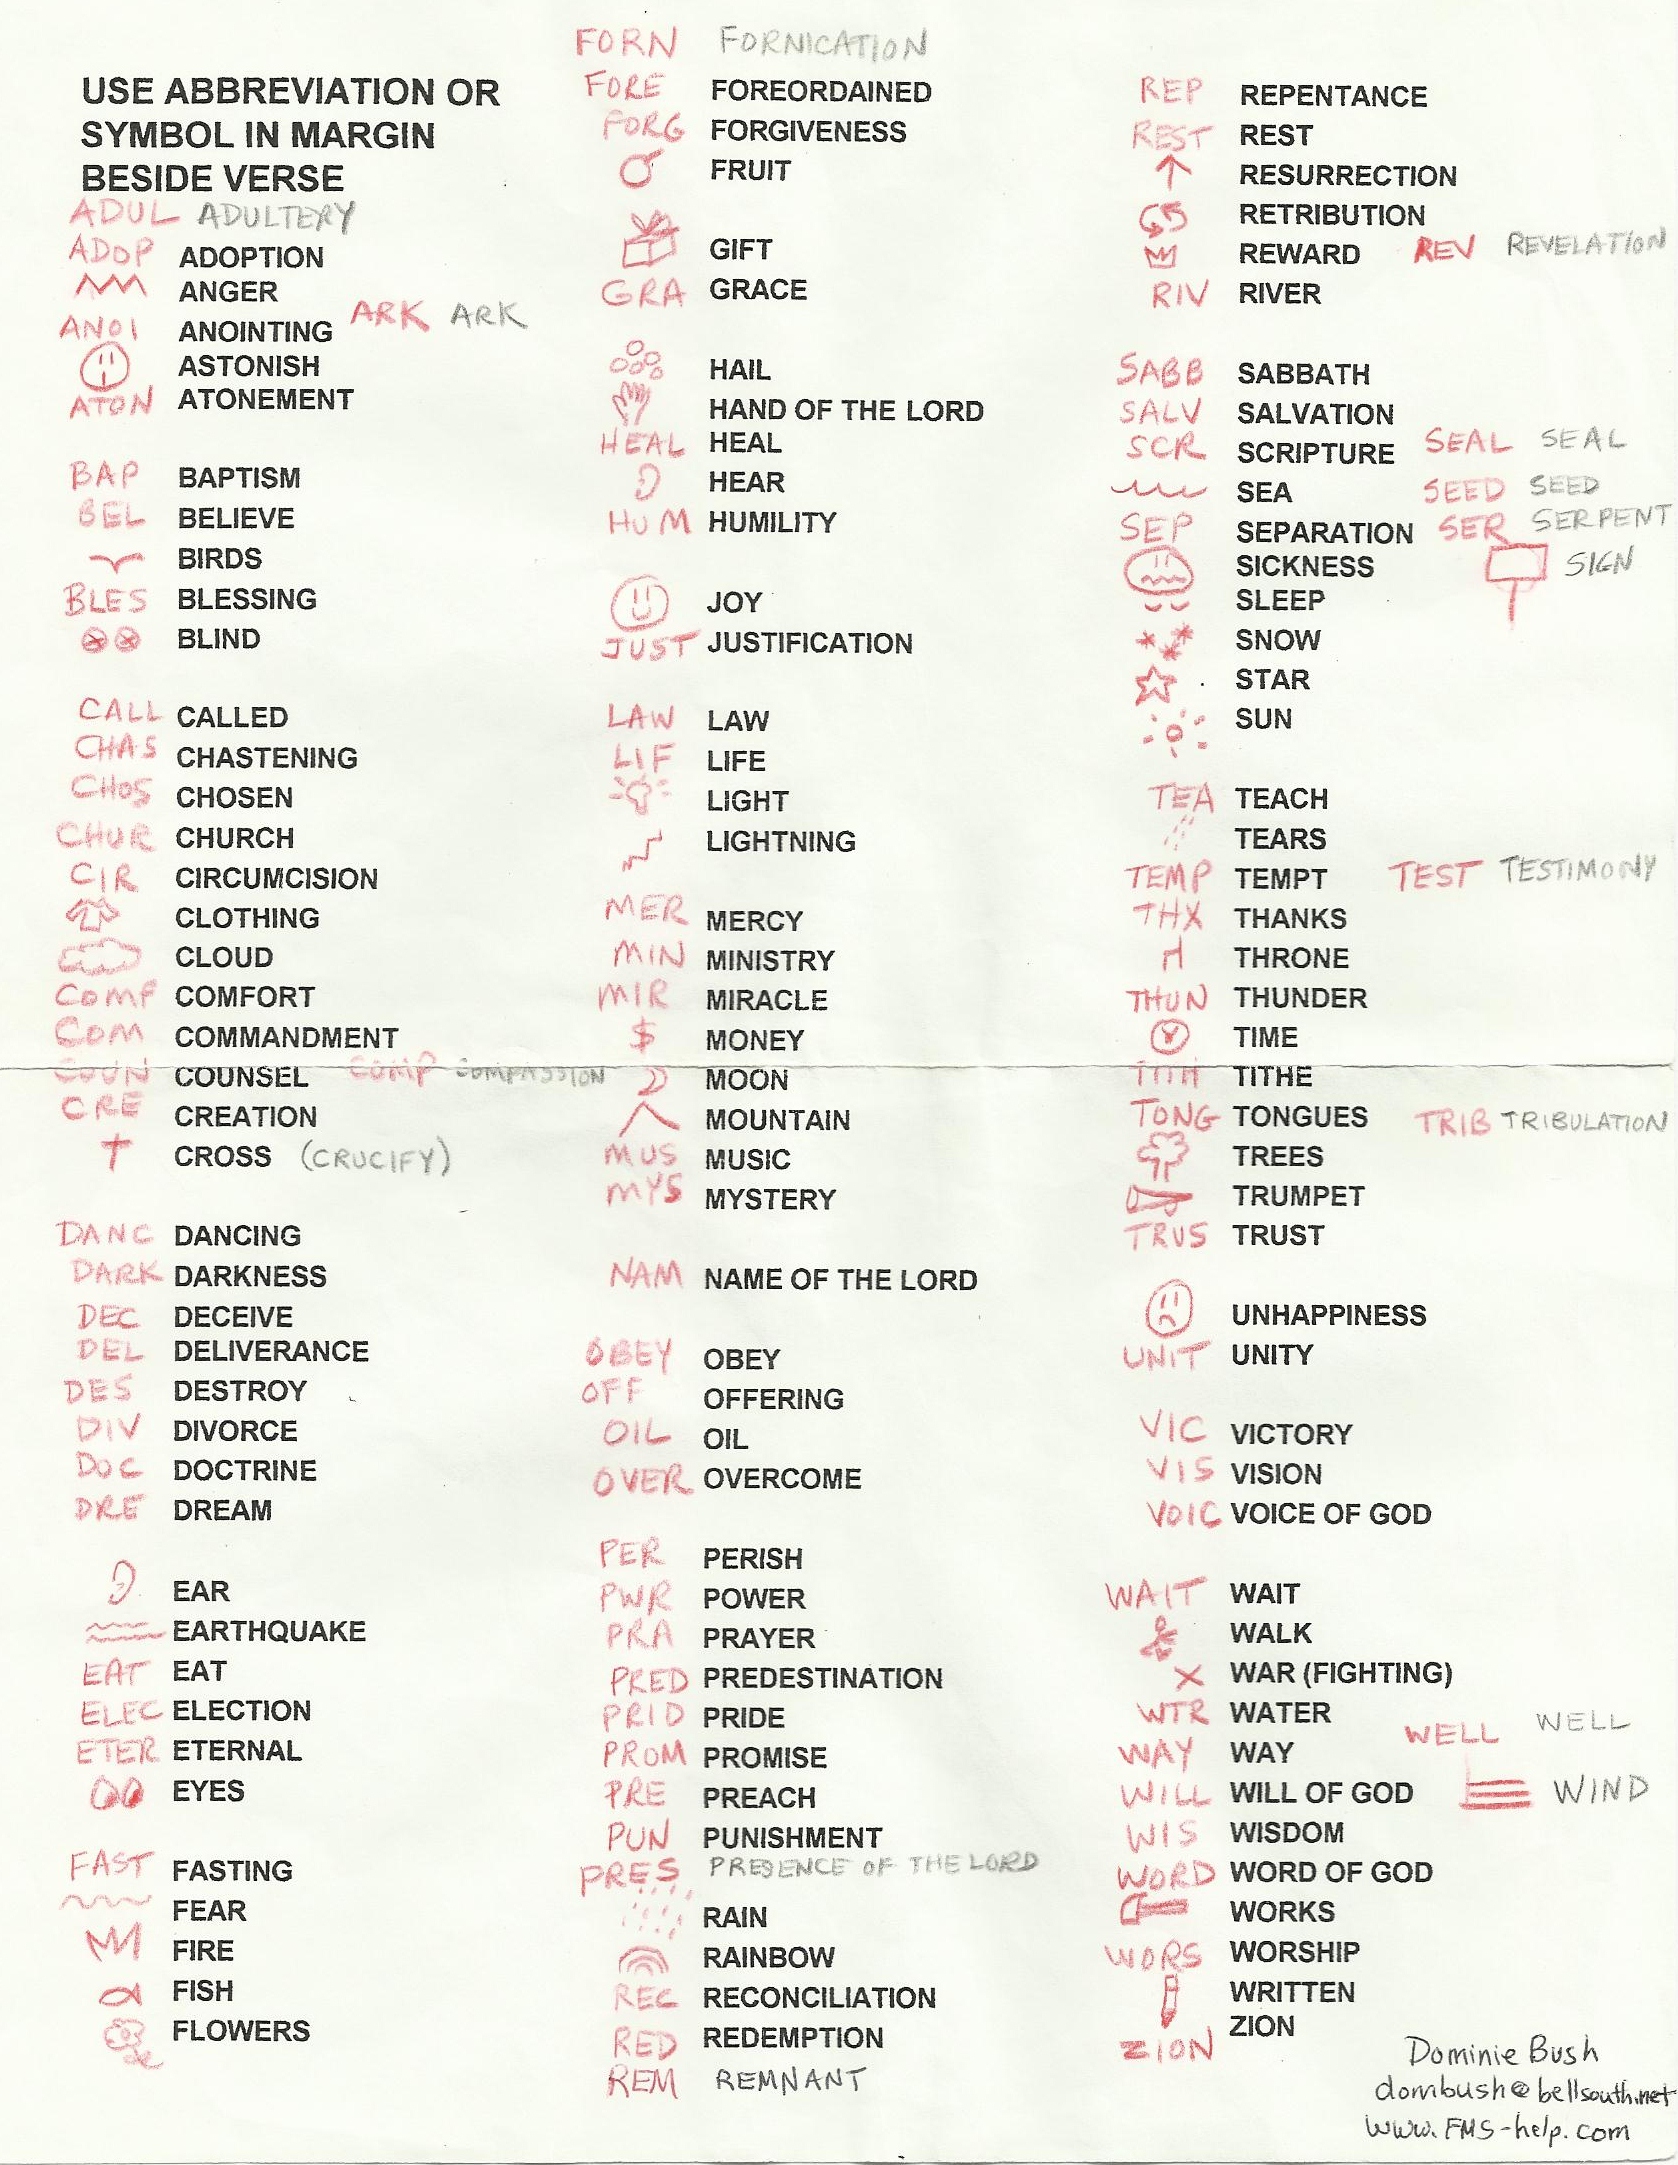 USE ABBREVIATION OR
SYMBOL IN MARGIN
BESIDE VERSE
ADUL ADULTERY
ADOP ADOPTION
ANGER
ANOI ANOINTING ARK ARK
ASTONISH
ATON ATONEMENT
BAP BAPTISM
BEL BELIEVE
BIRDS
BLES BLESSING
BLIND
CALL CALLED
CHAS CHASTENING
CHOS CHOSEN
CHUR CHURCH
CIR CIRCUMCISION
CLOTHING
CLOUD
COMF COMFORT
COM COMMANDMENT
COUN COUNSEL COMP COMPASSION
CRE CREATION
CROSS (CRUCIFY)
DANC DANCING
DARK DARKNESS
DEC DECEIVE
DEL DELIVERANCE
DES DESTROY
DIV DIVORCE
DOC DOCTRINE
DRE DREAM
EAR
EARTHQUAKE
EAT EAT
ELEC ELECTION
ETER ETERNAL
EYES
FAST FASTING
FEAR
FIRE
FISH
FLOWERS
FORN FORNICATION
FORE FOREORDAINED
FORG FORGIVENESS
FRUIT
GIFT
GRA GRACE
HAIL
HAND OF THE LORD
HEAL HEAL
HEAR
HUM HUMILITY
JOY
JUST JUSTIFICATION
LAW LAW
LIF LIFE
LIGHT
LIGHTNING
MER MERCY
MIN MINISTRY
MIR MIRACLE
$ MONEY
MOON
MOUNTAIN
MUS MUSIC
MYS MYSTERY
NAM NAME OF THE LORD
OBEY OBEY
OFF OFFERING
OIL OIL
OVER OVERCOME
PER PERISH
PWR POWER
PRA PRAYER
PRED PREDESTINATION
PRID PRIDE
PROM PROMISE
PRE PREACH
PUN PUNISHMENT
PRES PRESENCE OF THE LORD
RAIN
RAINBOW
REC RECONCILIATION
RED REDEMPTION
REM REMNANT
REP REPENTANCE
REST REST
RESURRECTION
RETRIBUTION
REWARD REV REVELATION
RIV RIVER
SABB SABBATH
SALV SALVATION
SCR SCRIPTURE SEAL SEAL
SEA SEED SEED
SEP SEPARATION SER SERPENT
SICKNESS SIGN
SLEEP
SNOW
STAR
SUN
TEA TEACH
TEARS
TEMP TEMPT TEST TESTIMONY
THX THANKS
THRONE
THUN THUNDER
TIME
TITH TITHE
TONG TONGUES TRIB TRIBULATION
TREES
TRUMPET
TRUS TRUST
UNHAPPINESS
UNIT UNITY
VIC VICTORY
VIS VISION
VOIC VOICE OF GOD
WAIT WAIT
WALK
X WAR (FIGHTING)
WTR WATER WELL WELL
WAY WAY
WILL WILL OF GOD WIND
WIS WISDOM
WORD WORD OF GOD
WORKS
WORS WORSHIP
WRITTEN
ZION ZION
Dominie Bush
dombush@bellsouth.net
www.FMS-help.com